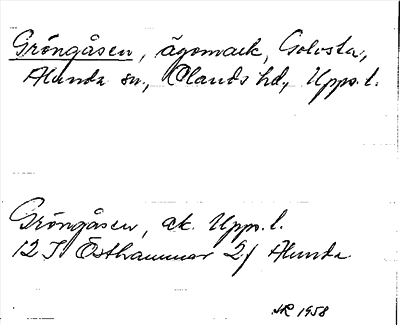 Gröngåsen, ägomark, Golvsta,
Alunda sn., Olands hd, Upps. l.
Gröngåsen, ek. Upps. l.
12 I Östhammar 2f Alunda
1958